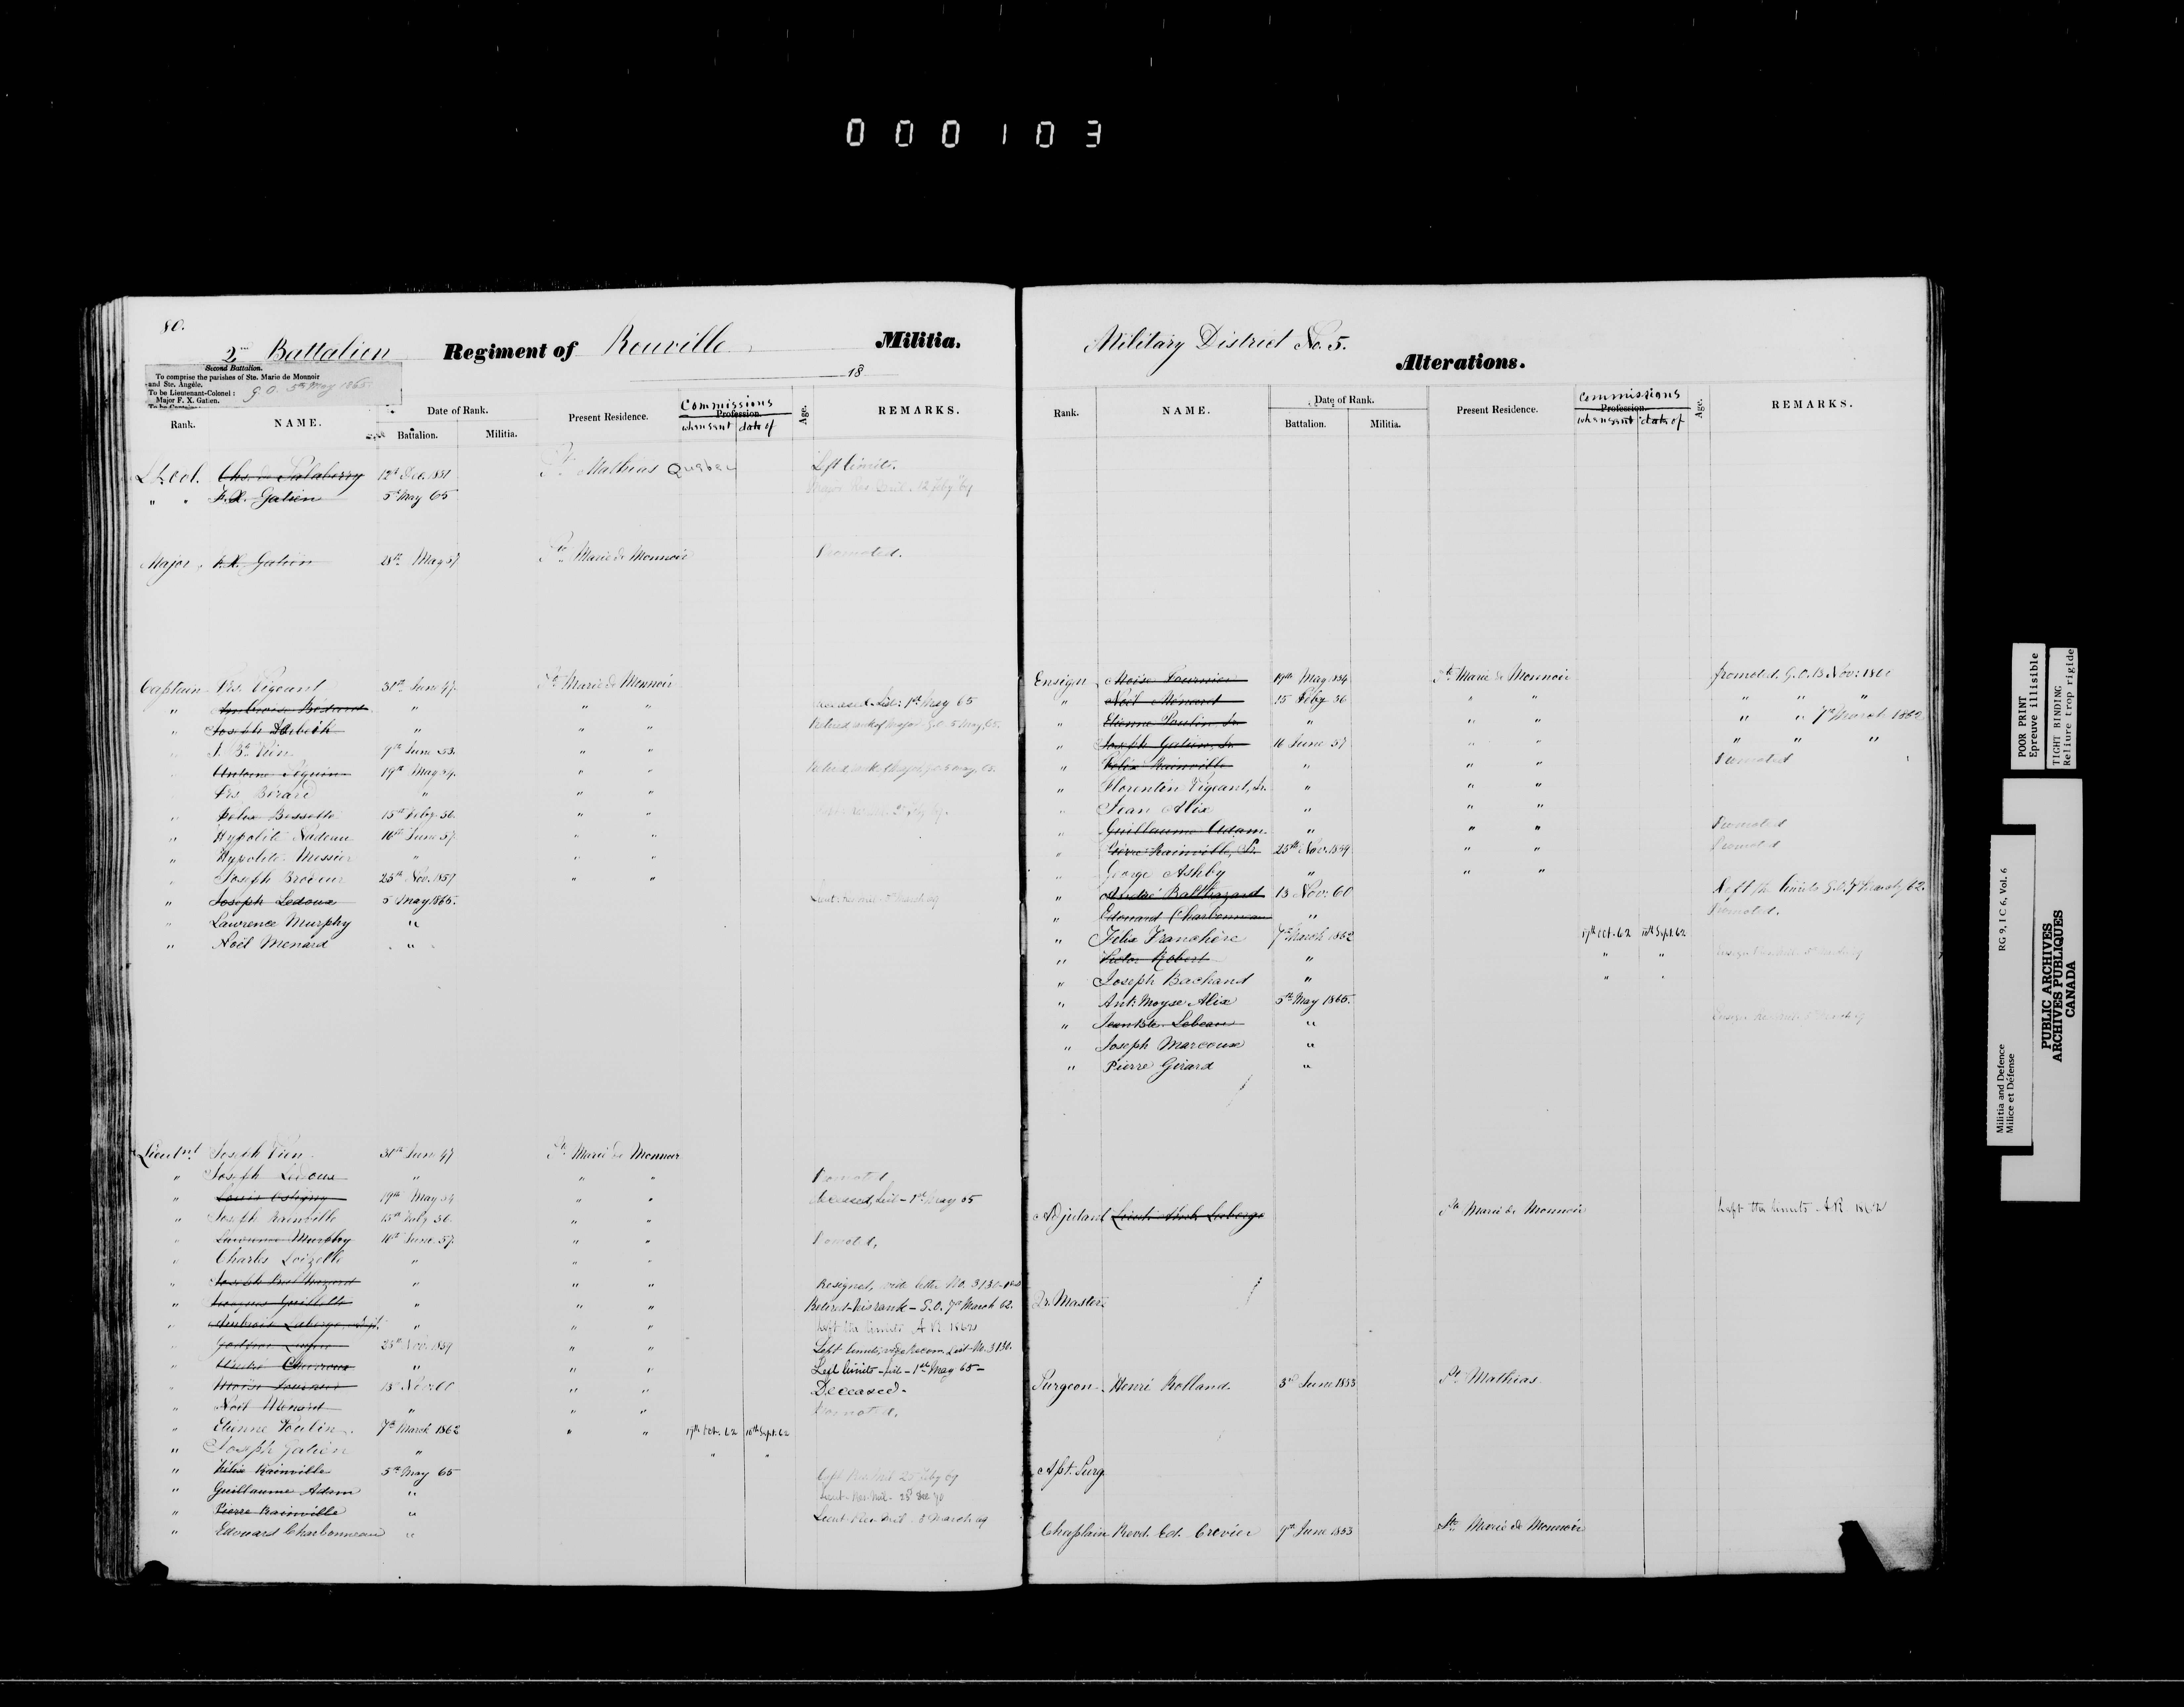 000103
80.
2nd Battalion Regiment of Rouville Militia.
18
Second Battalion.
To comprise the parishes of Ste. Marie de Monnoir
and Ste. Angèle.
G.O. 5th May 1865
To be Lieutenant-Colonel:
Major F. X. Gatien.
Rank. NAME. Date of Rank. Battalion. Militia. Present Residence. Commissions Profession. when sent date of Age. REMARKS.
Lt. Col. Chs. de Salaberry 12th Dec. 1851 St. Mathias Quebec Left limits.
" " F.X. Gatien 5th May 65
Major F.X. Gatien 28th May 57 Ste Marie de Monnoir Promoted.
Captain Frs. Vigeant 31st June 47 Ste Marie de Monnoir
" Ambroise Bédard " " " deceased List: 1st May 65
" Joseph " " " Retired rank of Major G.O. 5 May, 65.
" J. Bte Vien 9th June 53. " "
" Antoine 19th May 54. " " Retired rank of Major G.O. 5 May, 65.
" Frs. Berard " " "
" Felix Bessette 15th Feby 56. " "
" Hypolite Nadeau 16th June 57. " "
" Hypolite Messier " " "
" Joseph Brodeur 25th Nov. 1857 " "
" Joseph Ledoux 5 May, 1865.
" Lawrence Murphy "
" Noël Menard "
Lieutnt Joseph Vien 31st June 47 Ste Marie de Monnoir
" Joseph Ledoux " " " Promoted
" Louis Ostigny 19th May 54 " " deceased, List - 1st May 65
" Joseph Rainville 15th Feby 56 " "
" Lawrence Murphy 16th June 57. " " Promoted,
" Charles Loizelle " " "
" Joseph Balthazard " " " Resigned, vide letter No. 3130
" " " " Retired - his rank - G.O. 7th March 62.
" Ambroise Laberge, Adjt. " " " Left the limits A R 1862
" 25th Nov. 1859 " " Left limits, vide Recom. List - No. 3130.
" " " " Left limits - List - 1st May 65 -
" Moïse Fournier 13 Nov: 60 " " Deceased.
" Noël Menard " " " Promoted,
" Etienne Poulin 7th March 1862 " " 17th Oct. 62 10th Sept. 62
" Joseph Gatien " " "
" Félix Rainville 5th May 65 Capt. Ret. Mil 25 Feby 69
" Guillaume Adam "
" Pierre Rainville " Lieut. Ret. Mil. 5 March 69
" Edouard Charbonneau "
Military District No. 5.
Alterations.
Rank. NAME. Date of Rank. Battalion. Militia. Present Residence. Commissions Profession. when sent date of Age. REMARKS.
Ensign Moïse Fournier 19th May 1854 Ste Marie de Monnoir promoted G.O. 13 Nov: 1860
" Noël Ménard 15 Feby 56 " " " " "
" Etienne Poulin, Jr. " " " " " 7th March 1862
" Joseph Gatien, Jr. 16 June 57 " " " " "
" Félix Rainville " " " Promoted
" Florentin Vigeant, Jr. " " "
" Jean Alix " " "
" Guillaume Adam " " " Promoted
" Pierre Rainville, Jr. 25th Nov. 1859 " " Promoted
" George Ashby " " "
" André Balthazard 13 Nov: 60 Left the limits G.O. 7 March 62.
" Edouard Charbonneau " Promoted.
" Félix Franchère 7th March 1862 17th Oct. 62 10th Sept. 62
" Victor Robert " " "
" Joseph Bachand " " "
" Ant: Moyse Alix 5th May 1865.
" Jean Bte. Lebeau "
" Joseph Marcoux "
" Pierre Girard "
Adjutant Lieut: Laberge Ste Marie de Monnoir Left the limits A R 1862
Qr. Master.
Surgeon Henri Rolland 3rd June 1853 St. Mathias
Asst. Surg.
Chaplain Revd. Ed. Crevier 9th June 1853 Ste Marie de Monnoir
POOR PRINT
Epreuve illisible
TIGHT BINDING
Reliure trop rigide
RG 9, I C 6, Vol. 6
Militia and Defence
Milice et Défense
PUBLIC ARCHIVES
ARCHIVES PUBLIQUES
CANADA